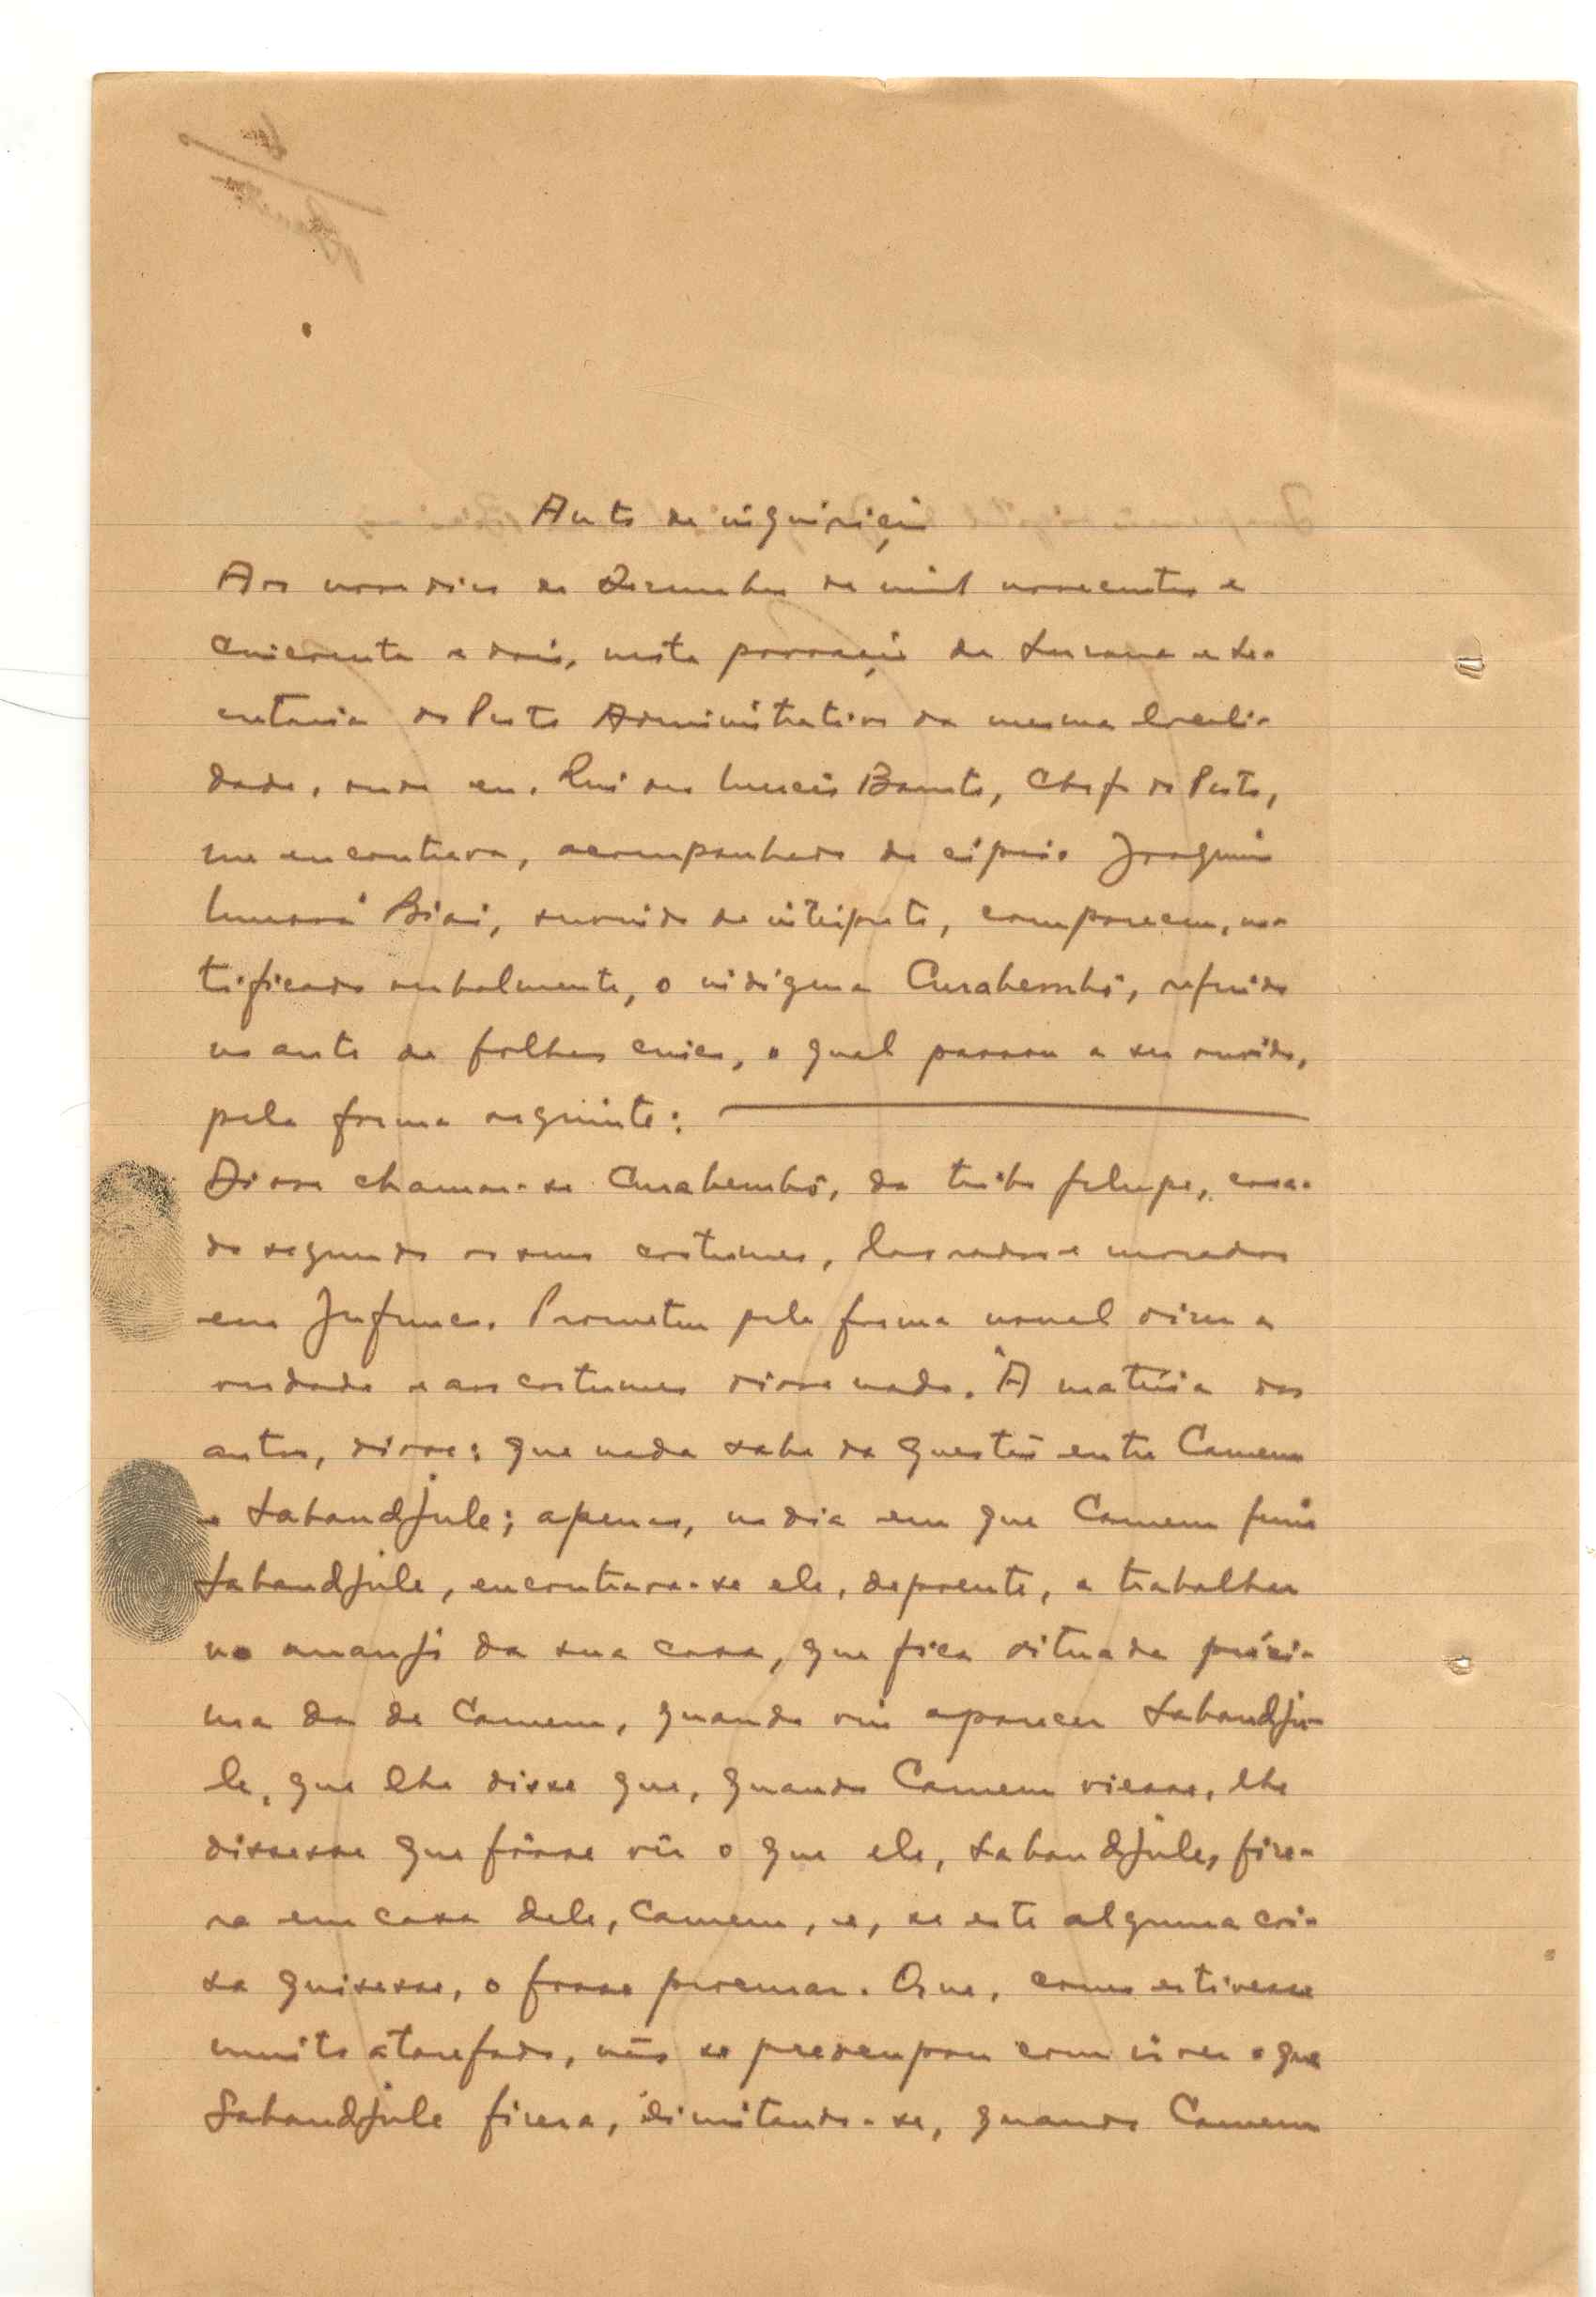 Auto de inquirição
Aos nove dias de Dezembro de mil novecentos e
cincoenta e dois, nesta povoação de Suzana e Se-
cretaria do Posto Administrativo da mesma locali-
dade, onde eu, Rui dos Barreto, Chefe do Posto,
me encontrava, acompanhado do cipaio Joaquim
Biai, servindo de intérprete, compareceu, no-
tificado verbalmente, o indígena Curabembô, referido
no auto de folhas cinco, o qual passou a ser ouvido,
pela forma seguinte:
Disse chamar-se Curabembô, da tribo felupe, casa-
do segundo os seus costumes, lavrador e morador
em Jufunco. Prometeu pela forma usual dizer a
verdade e aos costumes disse nada. À matéria dos
autos, disse: que nada sabe da questão entre Camem
e Sabandjule; apenas, no dia em que Camem feriu
Sabandjule, encontrava-se ele, depoente, a trabalhar
no da sua casa, que fica situada próxi-
ma da de Camem, quando viu aparecer Sabandju-
le, que lhe disse que, quando Camem viesse, lhe
dissesse que fôsse vêr o que ele, Sabandjule, fize-
ra em casa dele, Camem, e, se este alguma coi-
sa quisesse, o fosse procurar. Que, como estivesse
muito atarefado, não se preocupou com ir ver o que
Sabandjule fizera, limitando-se, quando Camem